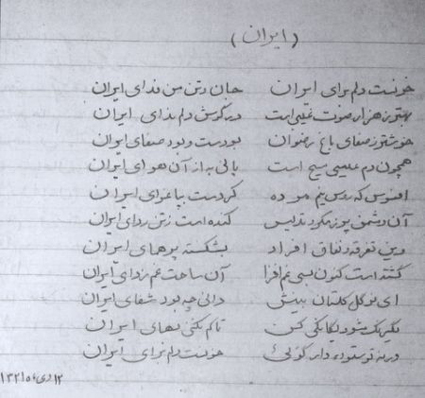 (ایران)
خونست دلم برای ایران جان و تن من فدای ایران
بهتر ز هزار صوت غیبی است در گوش دلم ندای ایران
خوشتر ز صفای باغ رضوان بودست و بود صفای ایران
همچون دم عیسی مسیح است باقی به از آن هوای ایران
افسوس که روس نیم مرده کردست بپا عزای ایران
آن دشمن پر ز مکر و تدلیس کنده است ز تن ردای ایران
وین تفرقه و نفاق افراد بشکسته پرهمای ایران
گشته است کنون بسی غم افزا آن ساحت غم زدای ایران
ای نوگل گلستان بینش دانی چه بود شفای ایران
یکرنگ شو و یگانگی کن تا کم نکنی بهای ایران
ورنه تو ستوده دار گوئی خونست دلم برای ایران
۱۲ دی ۱۳۲۱